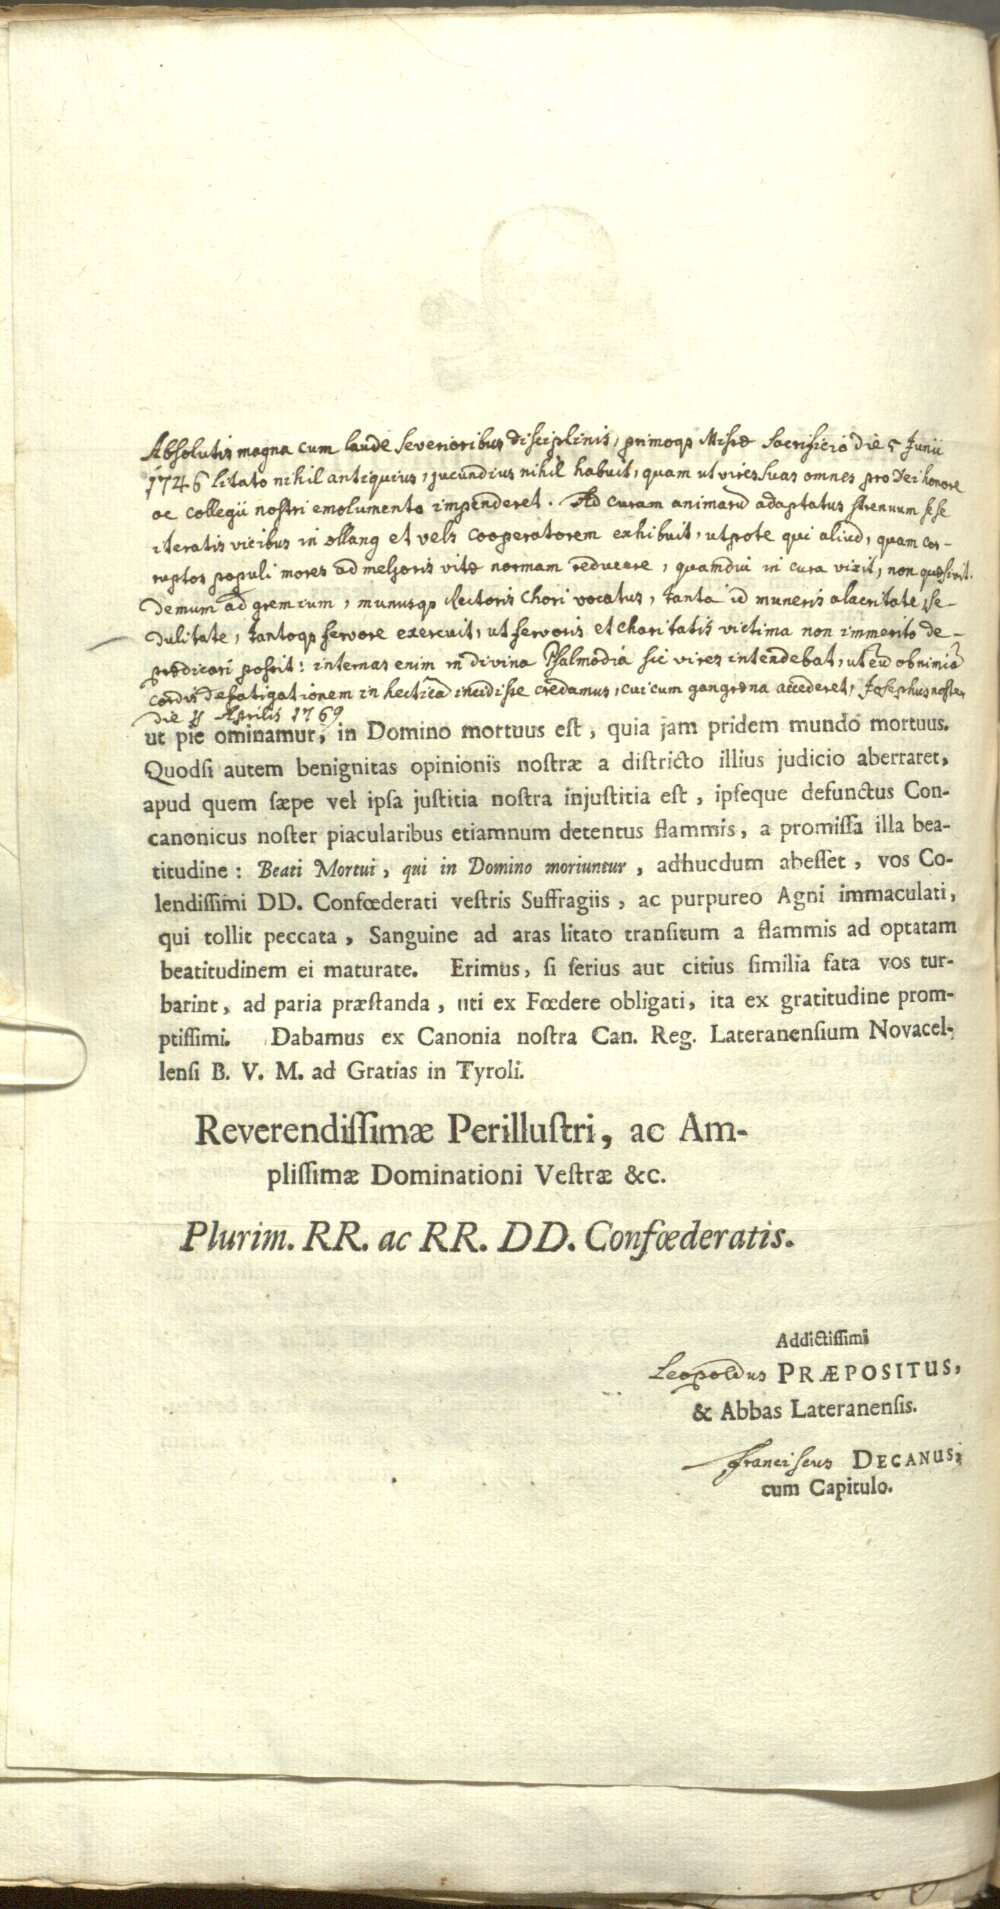 Absolutis magna cum laude severioribus disciplinis, primoq́; Missæ Sacrificio die 5 Junii
1746 litato nihil antiquius, jucundius nihil habuit, quam ut vires suas omnes pro Dei honore
ac collegii nostri emolumento impenderet. Ad curam animarũ adaptatus strenuum sese
iteratis vicibus in Ollang et Vels cooperatorem exhibuit, utpote qui aliud, quam cor-
ruptos populi mores ad melioris vitæ normam reducere, quamdiu in cura vixit, non quæsivit.
Demum ad gremium, munusq́; Rectoris Chori vocatus, tanta id muneris alacritate, se-
dulitate, tantoq́; fervore exercuit, ut fervoris et charitatis victima non immerito de-
prædicari possit: internas enim in divina Psalmodia sic vires intendebat, ut eũ ob nimiã
cordis defatigationem in hecticã incidisse credamus, cui cum gangrena accederet, Josephus noster
die Aprilis 1769
ut pie ominamur, in Domino mortuus est, quia jam pridem mundo mortuus.
Quodsi autem benignitas opinionis nostræ a districto illius judicio aberraret,
apud quem sæpe vel ipsa justitia nostra injustitia est, ipseque defunctus Con-
canonicus noster piacularibus etiamnum detentus flammis, a promissa illa bea-
titudine: Beati Mortui, qui in Domino moriuntur, adhucdum abesset, vos Co-
lendissimi DD. Confœderati vestris Suffragiis, ac purpureo Agni immaculati,
qui tollit peccata, Sanguine ad aras litato transitum a flammis ad optatam
beatitudinem ei maturate. Erimus, si serius aut citius similia fata vos tur-
barint, ad paria præstanda, uti ex Fœdere obligati, ita ex gratitudine prom-
ptissimi. Dabamus ex Canonia nostra Can. Reg. Lateranensium Novacel-
lensi B. V. M. ad Gratias in Tyroli.
Reverendissimæ Perillustri, ac Am-
plissimæ Dominationi Vestræ &c.
Plurim. RR. ac RR. DD. Confœderatis.
Addictissimi
Leopoldus PRÆPOSITUS,
& Abbas Lateranensis.
Franciscus DECANUS,
cum Capitulo.